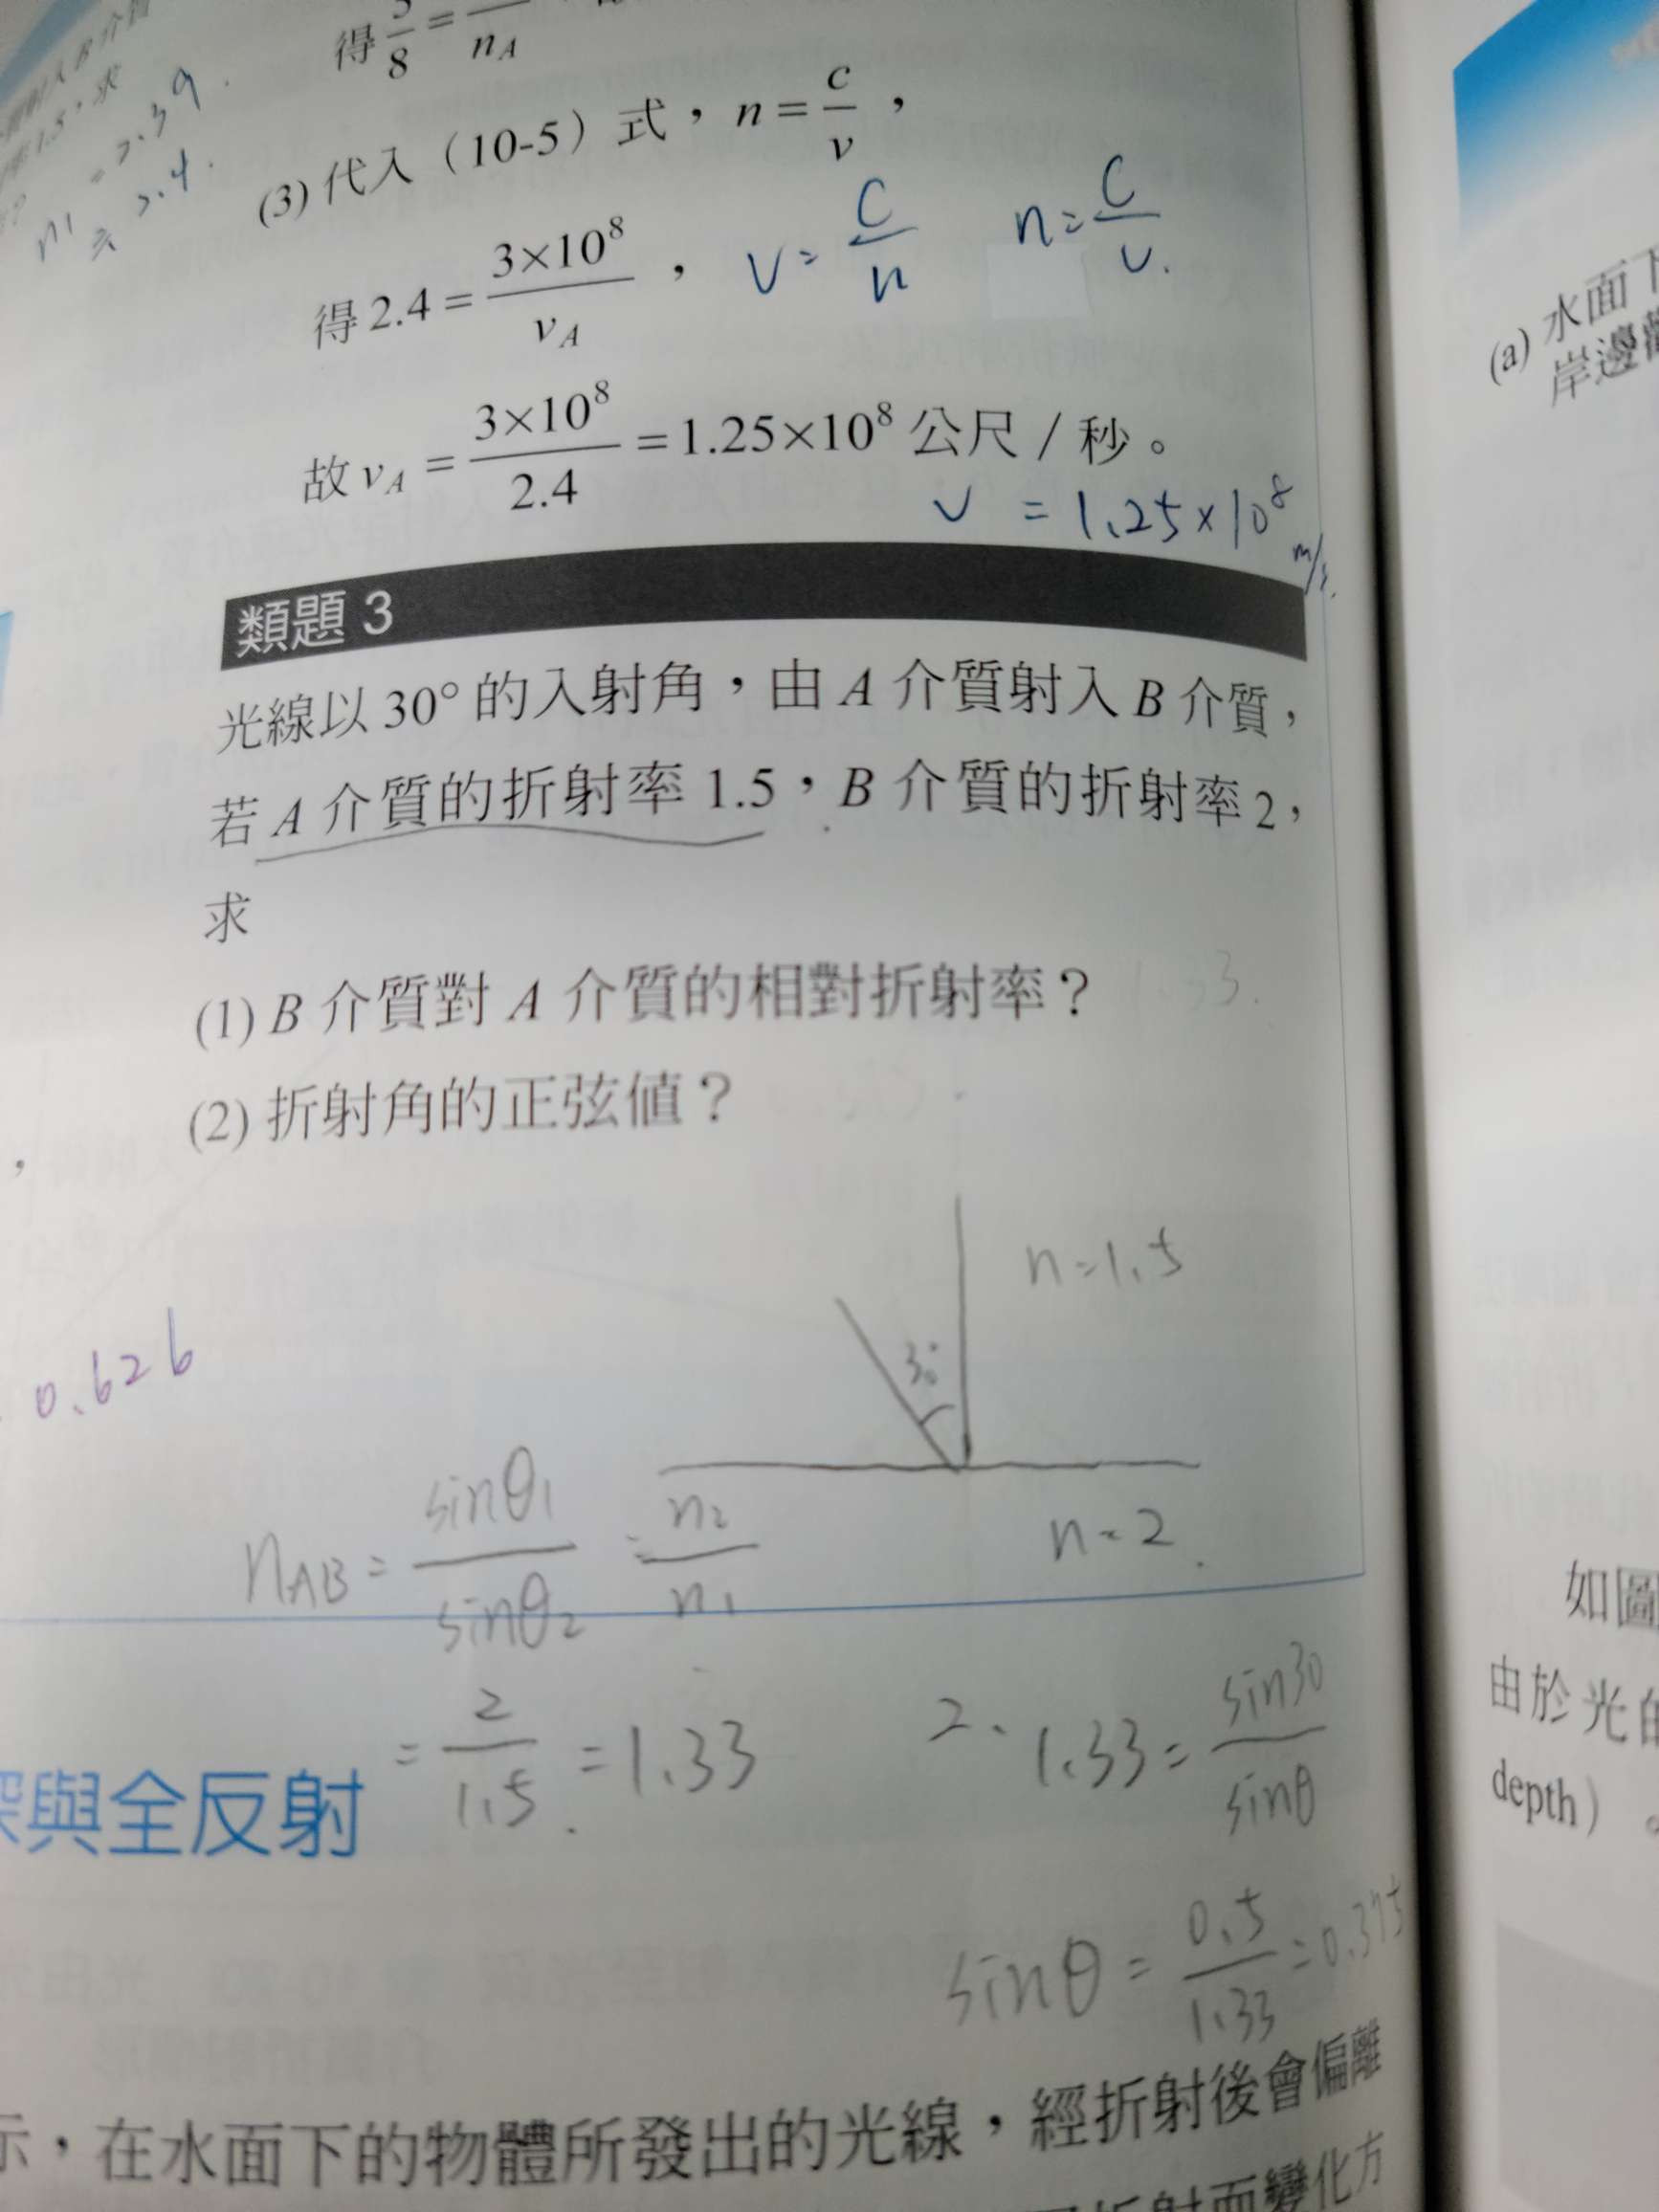 得 8 = n_A
= 2.39.
n1 ≒ 2.4.
(3) 代入（10-5）式，n = c/v，
得 2.4 = 3×10⁸/v_A，
v = c/n  n = c/v.
故 v_A = 3×10⁸/2.4 = 1.25×10⁸ 公尺 / 秒。
v = 1.25×10⁸ m/s.
類題 3
光線以 30° 的入射角，由 A 介質射入 B 介質，
若 A 介質的折射率 1.5，B 介質的折射率 2，
求
(1) B 介質對 A 介質的相對折射率？
(2) 折射角的正弦值？
n=1.5
30°
0.626
n=2.
nAB = sinθ1/sinθ2 = n2/n1
= 2/1.5 = 1.33
2. 1.33 = sin30/sinθ
sinθ = 0.5/1.33 = 0.375
與全反射
，在水面下的物體所發出的光線，經折射後會偏離
折射而變化方
(a) 水面下
岸邊
如圖
由於光的
depth）。